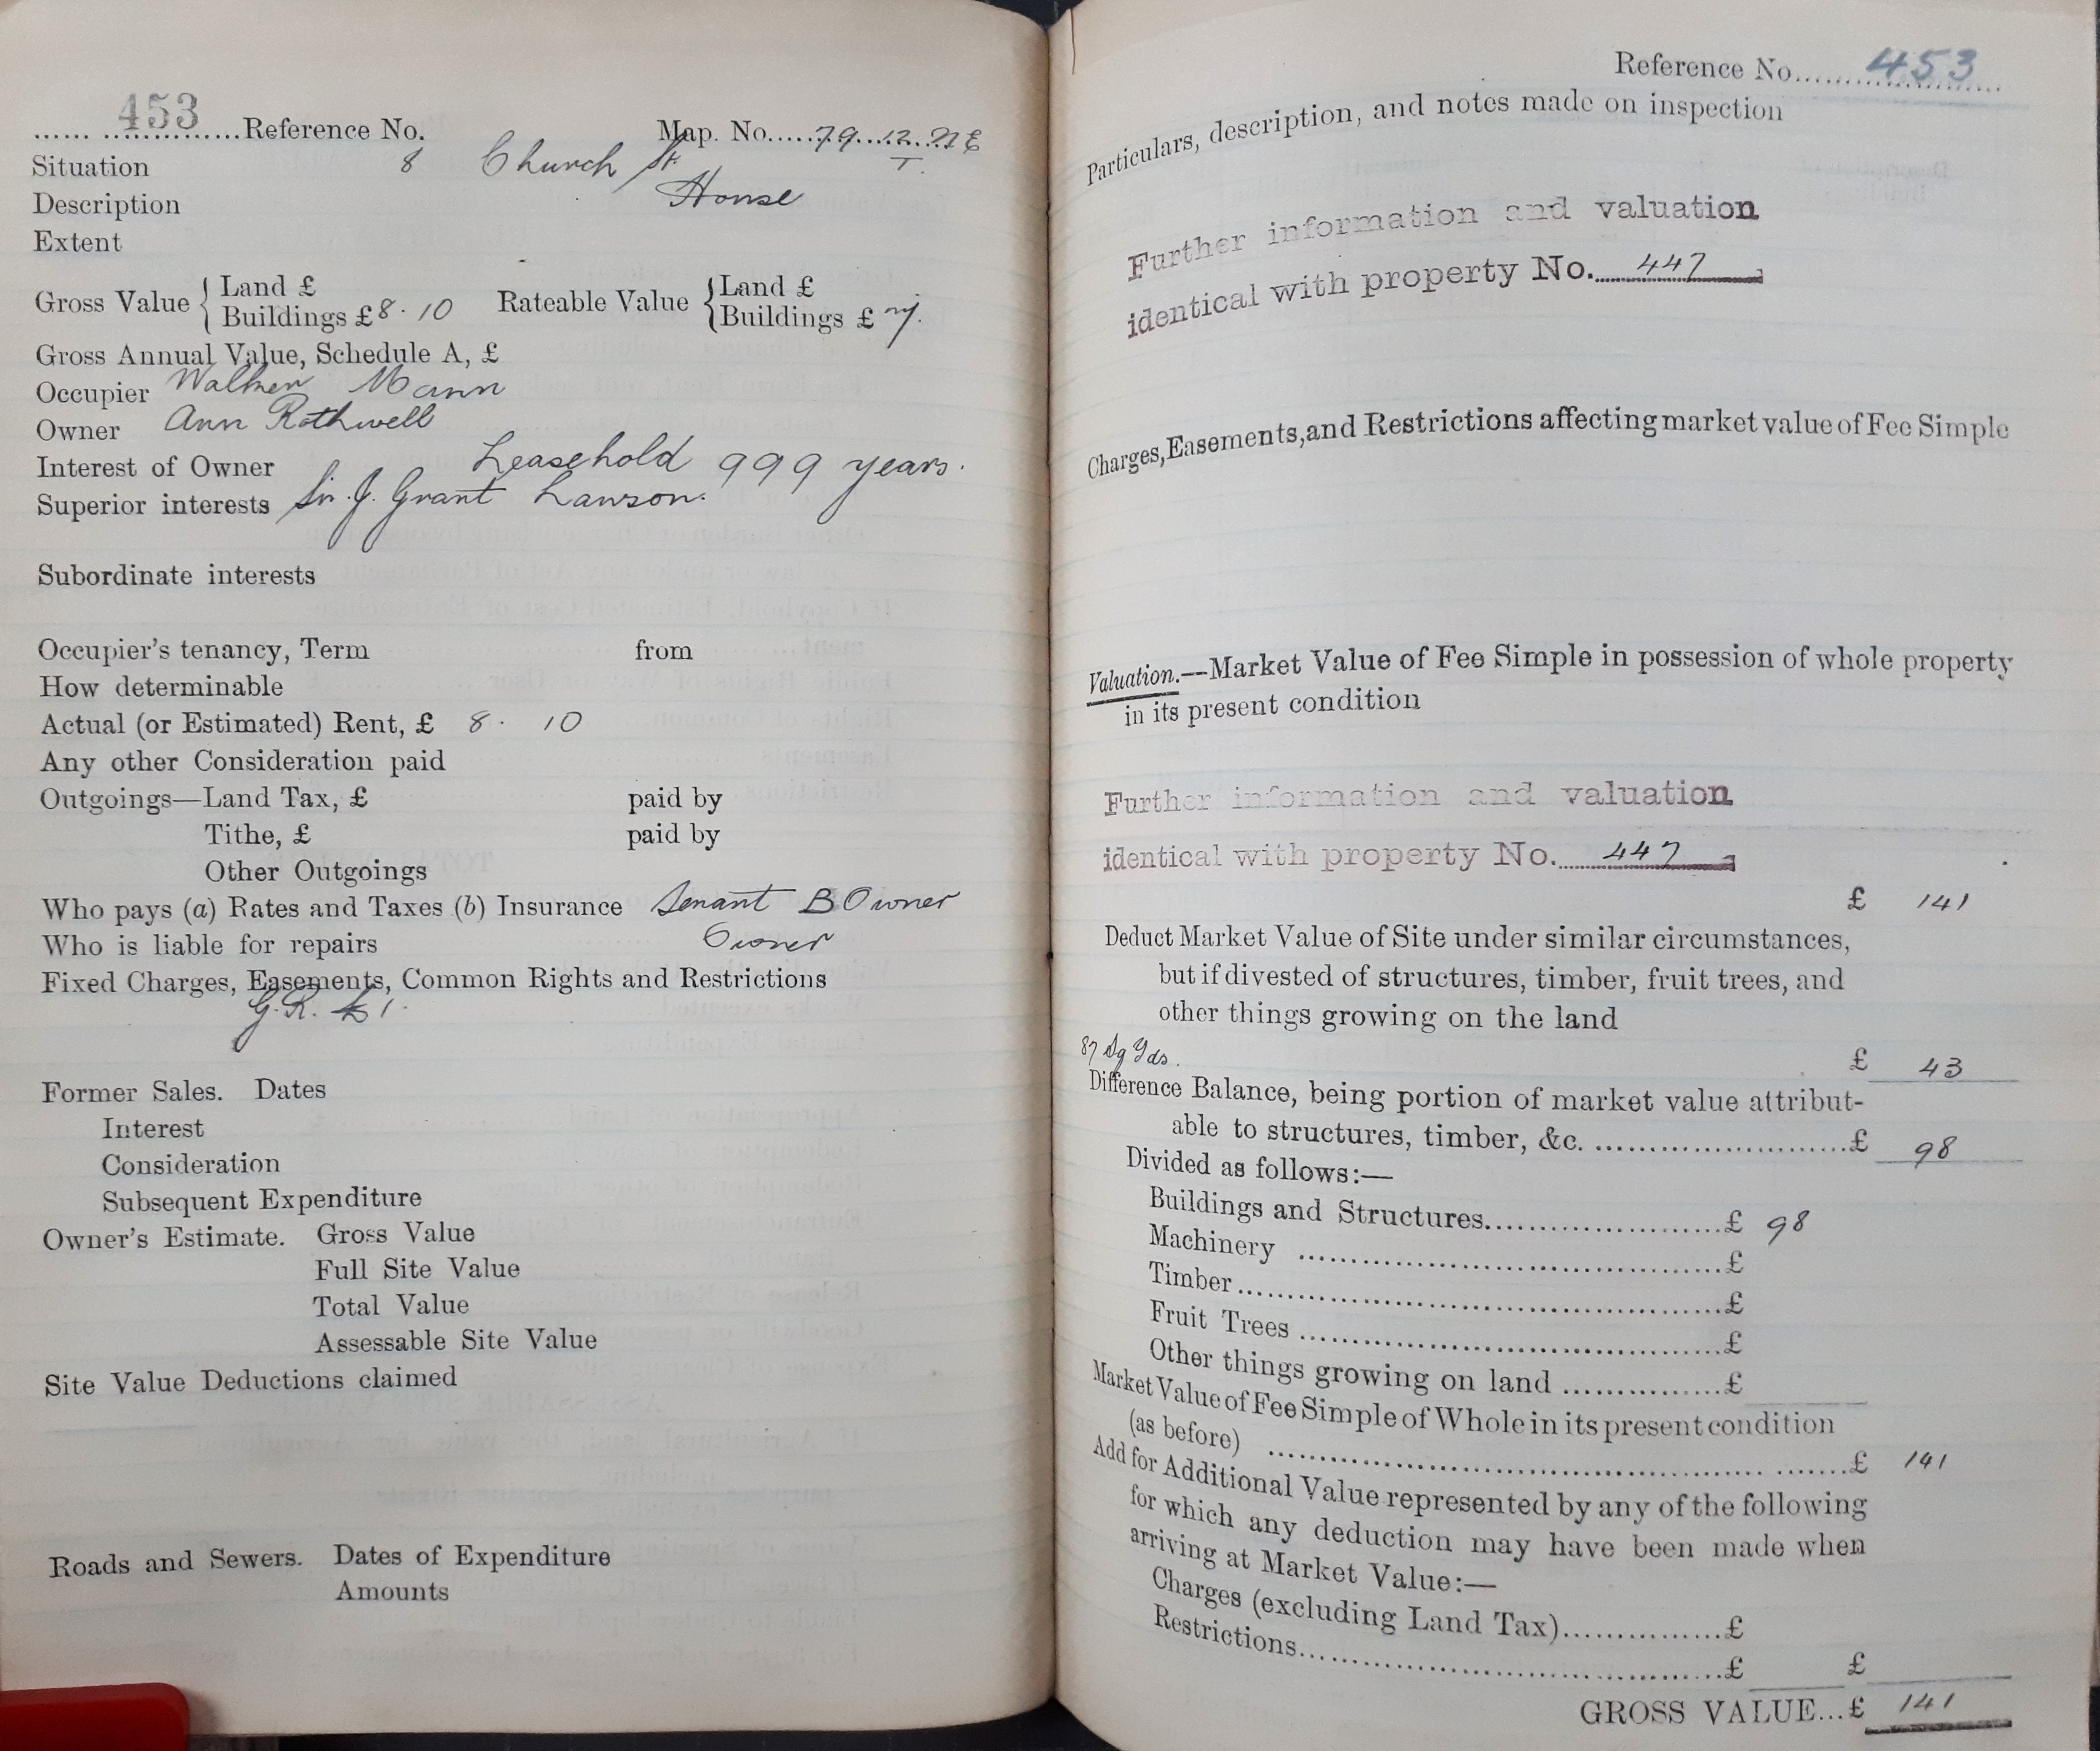 453 Reference No. Map. No. 79 12 21 E
T.
Situation 8 Church St.
Description House
Extent
Gross Value { Land £
Buildings £ 8. 10
Rateable Value { Land £
Buildings £ 7.
Gross Annual Value, Schedule A, £
Occupier Walmer Mann
Owner Ann Rothwell
Interest of Owner Leasehold 999 years.
Superior interests Sir. J. Grant Lawson.
Subordinate interests
Occupier's tenancy, Term from
How determinable
Actual (or Estimated) Rent, £ 8. 10
Any other Consideration paid
Outgoings—Land Tax, £ paid by
Tithe, £ paid by
Other Outgoings
Who pays (a) Rates and Taxes (b) Insurance Tenant B Owner
Who is liable for repairs Owner
Fixed Charges, Easements, Common Rights and Restrictions
G.R. £1.
Former Sales. Dates
Interest
Consideration
Subsequent Expenditure
Owner's Estimate. Gross Value
Full Site Value
Total Value
Assessable Site Value
Site Value Deductions claimed
Roads and Sewers. Dates of Expenditure
Amounts
Reference No. 453
Particulars, description, and notes made on inspection
Further information and valuation
identical with property No. 447
Charges, Easements, and Restrictions affecting market value of Fee Simple
Valuation.—Market Value of Fee Simple in possession of whole property
in its present condition
Further information and valuation
identical with property No. 447
£ 141
Deduct Market Value of Site under similar circumstances,
but if divested of structures, timber, fruit trees, and
other things growing on the land
87 Sq Yds. £ 43
Difference Balance, being portion of market value attribut-
able to structures, timber, &c. £ 98
Divided as follows:—
Buildings and Structures £ 98
Machinery £
Timber £
Fruit Trees £
Other things growing on land £
Market Value of Fee Simple of Whole in its present condition
(as before) £ 141
Add for Additional Value represented by any of the following
for which any deduction may have been made when
arriving at Market Value:—
Charges (excluding Land Tax) £
Restrictions £ £
GROSS VALUE...£ 141